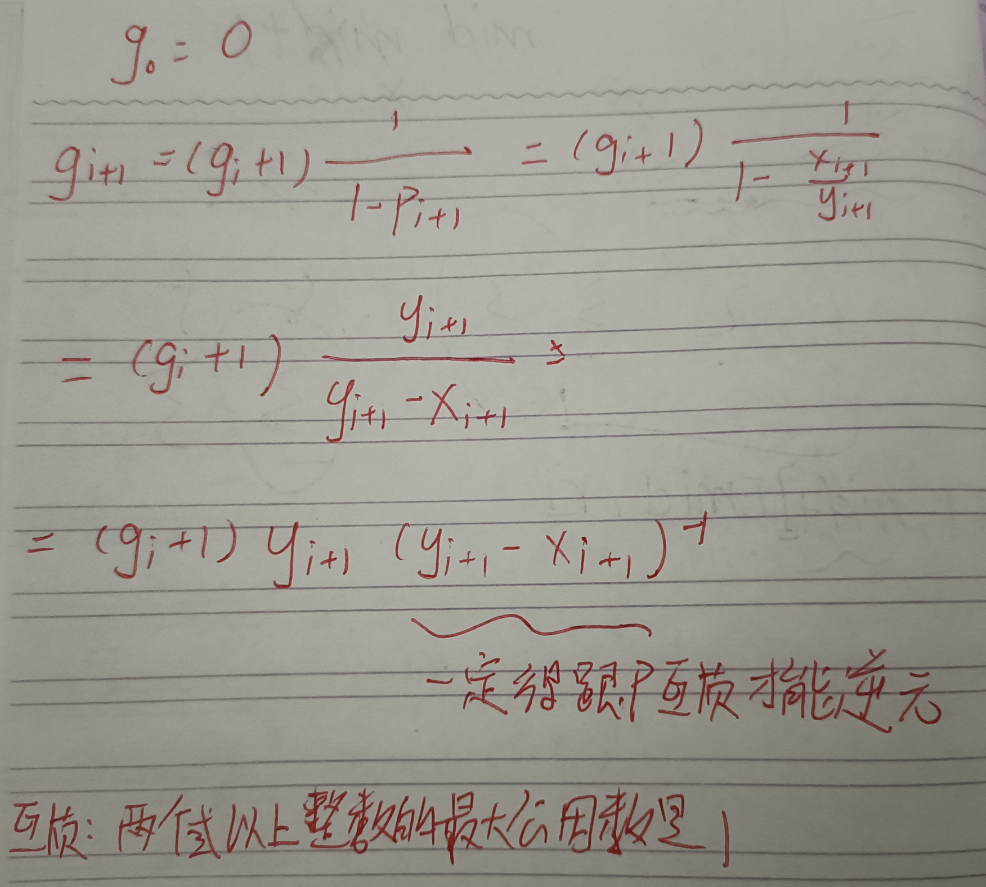 g₀ = 0
g_{i+1} = (g_i+1) \frac{1}{1-P_{i+1}} = (g_i+1) \frac{1}{1-\frac{x_{i+1}}{y_{i+1}}}
= (g_i+1) \frac{y_{i+1}}{y_{i+1}-x_{i+1}}
= (g_i+1) y_{i+1} (y_{i+1}-x_{i+1})^{-1}
一定得跟P互质才能逆元
互质：两个或以上整数的最大公因数是1